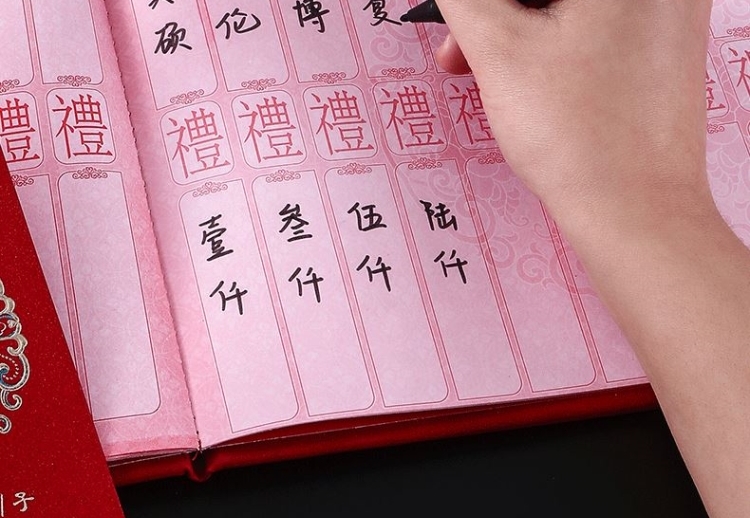 禮
禮
硕
禮
壹仟
伦
禮
叁仟
博
禮
伍仟
禮
陆仟
禮
子